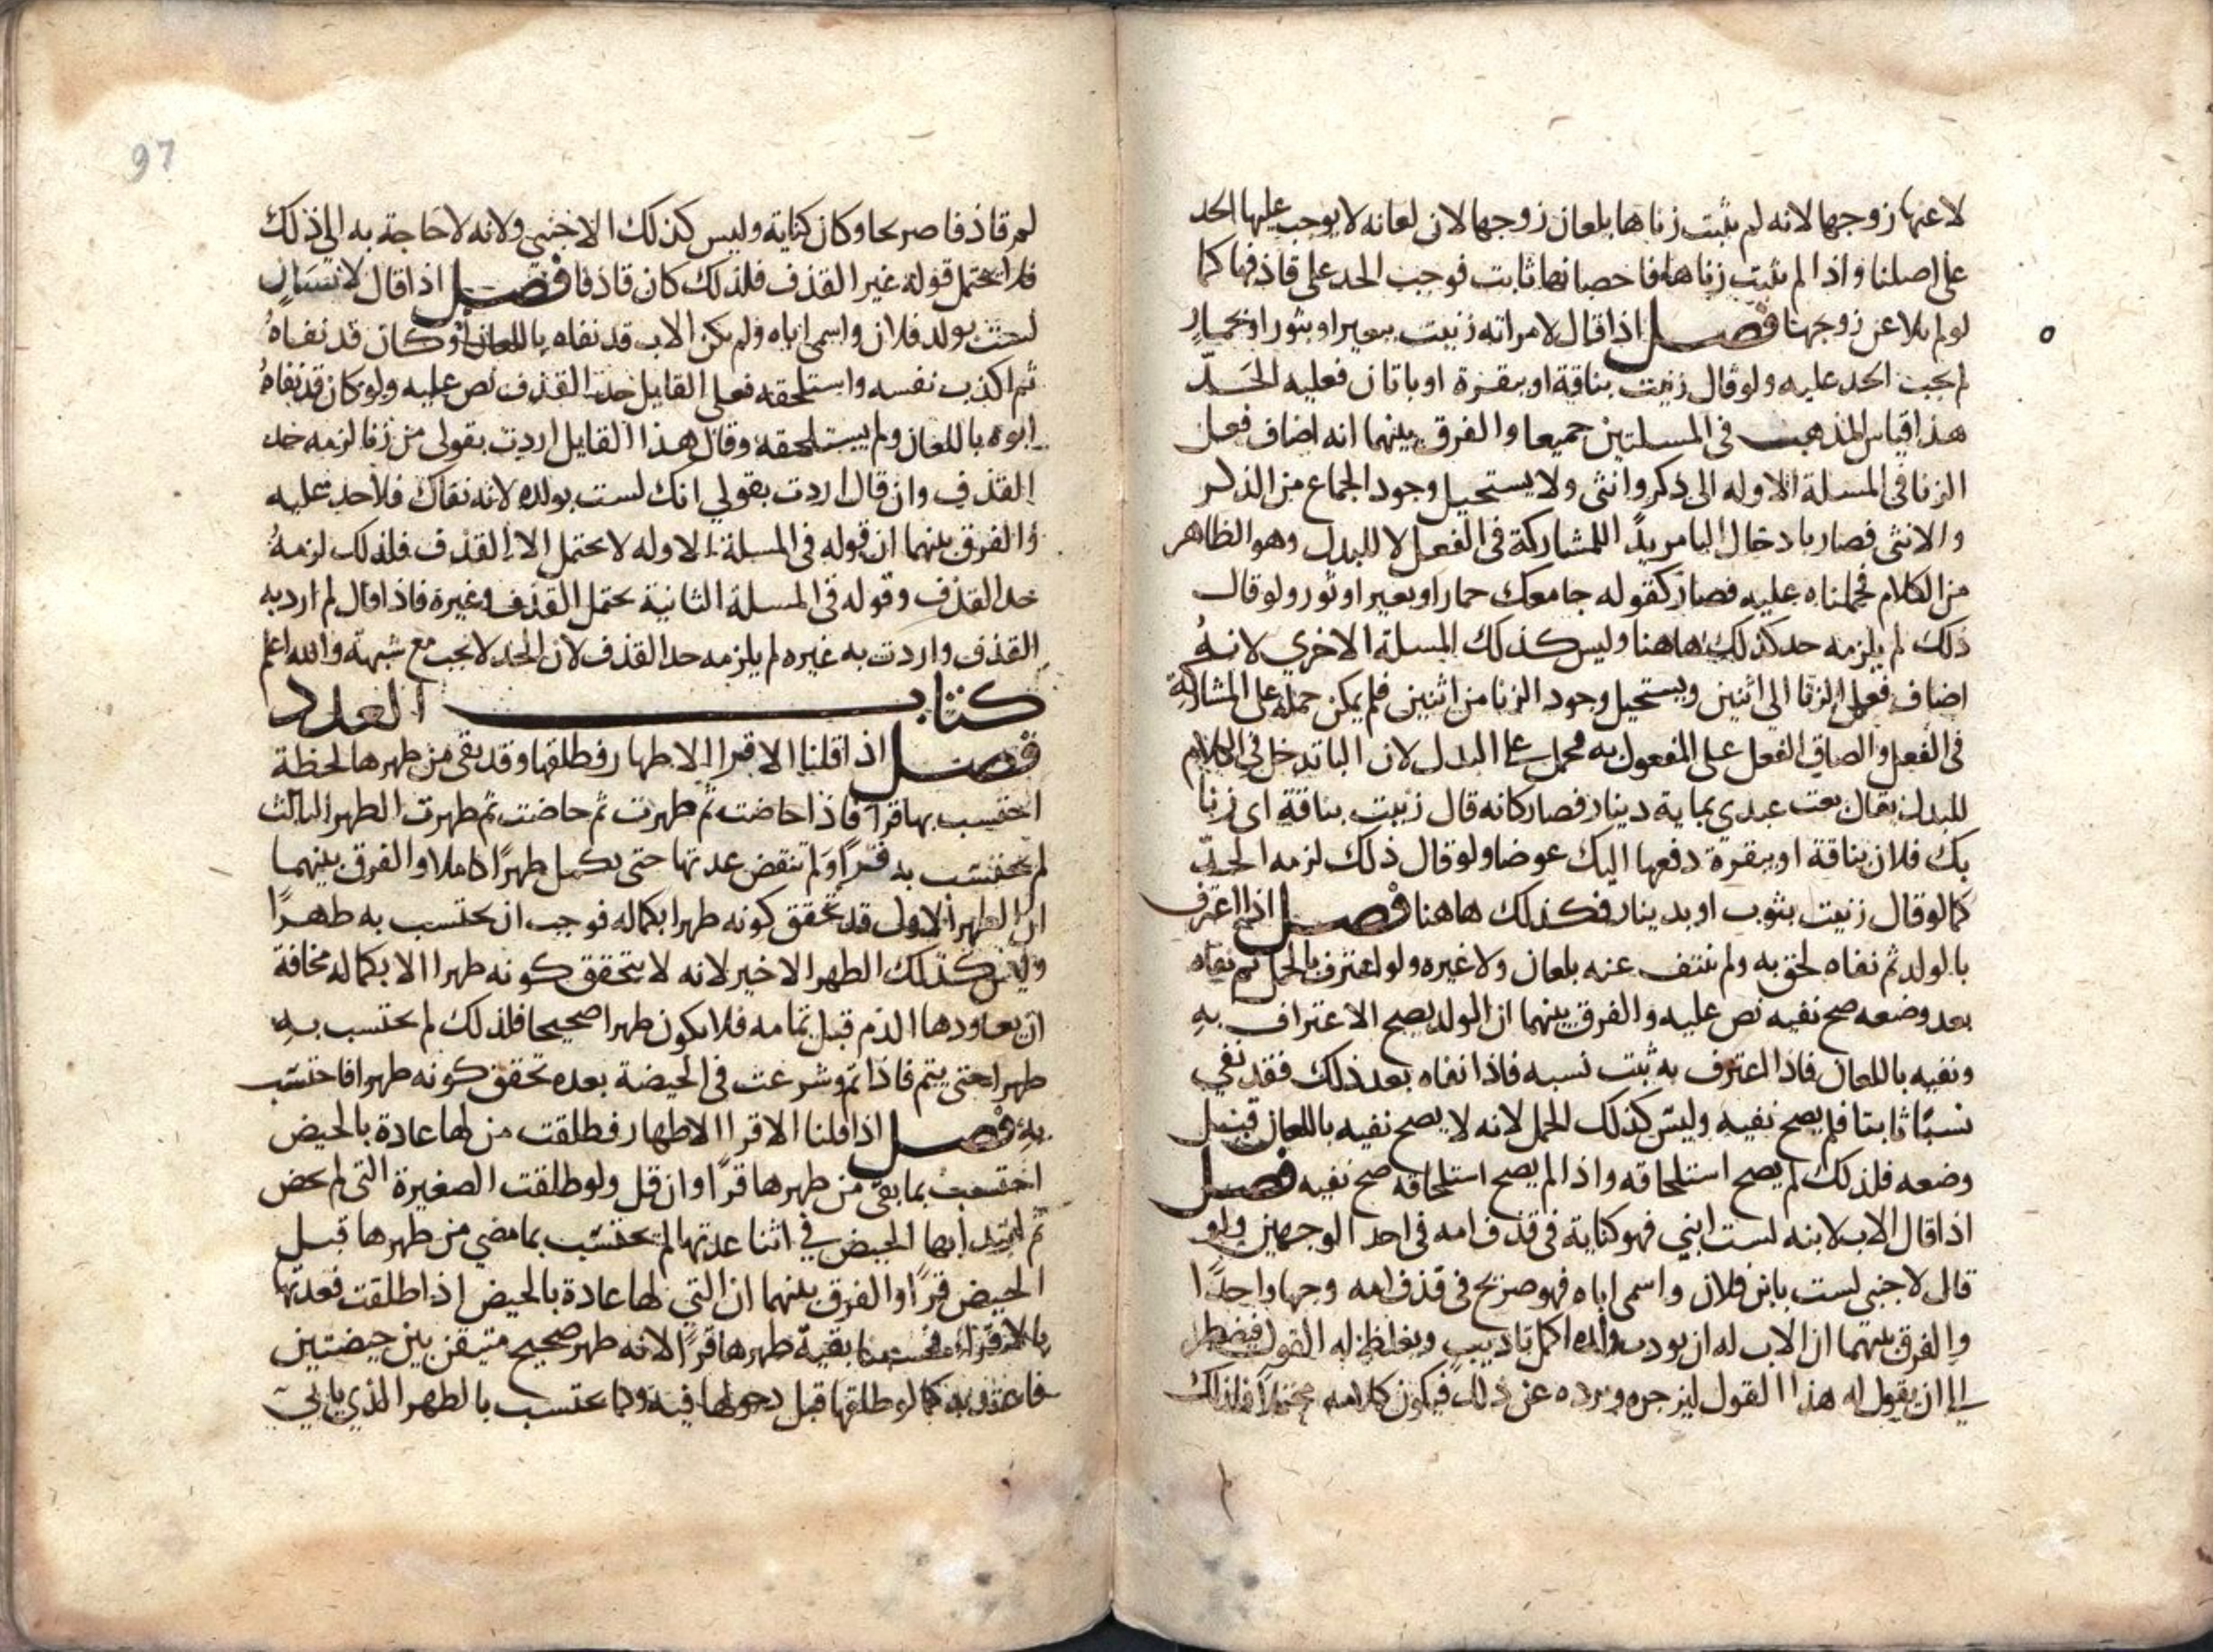 لاعنها زوجها لانه لم يثبت زناها بلعان زوجها لان لعانه لا يوجب عليها الحد
على اصلنا واذا لم يثبت زناها فاحصانها ثابت فوجب الحد على قاذفها كما
لو لم يلاعن زوجها فصل اذا قال لامراته زنيت ببعير او بثور او بحمار
لم يجب الحد عليه ولو قال زنيت بناقة او ببقرة او باتان فعليه الحد
هذا قياس المذهب في المسلتين جميعا والفرق بينهما انه اضاف فعل
الزنا في المسلة الاوله الى ذكر وانثى ولا يستحيل وجود الجماع من الذكر
والانثى فصار بادخال البا مريدا للمشاركة في الفعل لا للبدل وهو الظاهر
من الكلام فحملناه عليه فصار كقوله جامعك حمار او بعير او ثور ولو قال
ذلك لم يلزمه حد كذلك هاهنا وليس كذلك المسلة الاخري لانه
اضاف فعل الزنا الى اثنين ويستحيل وجود الزنا من اثنين فلم يمكن حمله على المشاركة
في الفعل والصاق الفعل على المفعول به محمل على البدل لان البا تدخل في الكلام
للبدل يقال بعت عبدي بماية دينار فصار كانه قال زنيت بناقة اي زنا
بك فلان بناقة او ببقرة دفعها اليك عوضا ولو قال ذلك لزمه الحد
كما لو قال زنيت بثوب او بدينار فكذلك هاهنا فصل اذا اعترف
بالولد ثم نفاه لحق به ولم ينتف عنه بلعان ولا غيره ولو اعترف بالحمل ثم نفاه
بعد وضعه صح نفيه نص عليه والفرق بينهما ان الولد يصح الاعتراف به
ونفيه باللعان فاذا اعترف به ثبت نسبه فاذا نفاه بعد ذلك فقد نفي
نسبا ثابتا فلم يصح نفيه وليس كذلك الحمل لانه لا يصح نفيه باللعان قبل
وضعه فلذلك لم يصح استلحاقه واذا لم يصح استلحاقه صح نفيه فصل
اذا قال الاب لابنه لست ابني فهو كناية في قذف امه في احد الوجهين ولو
قال لاجنبي لست بابن فلان واسمى اباه فهو صريح في قذف امه وجها واحدا
والفرق بينهما ان الاب له ان يودب ولده اكمل تاديب ويغلظ له القول فيضطر
الى ان يقول له هذا القول ليزجره ويرده عن ذلك فيكون كلامه محتملا فلذلك
97
لم قاذفا صريحا وكان كناية وليس كذلك الاجنبي ولانه لا حاجة به الى ذلك
فلا يحتمل قوله غير القذف فلذلك كان قاذفا فصل اذا قال لانسان
لست بولد فلان واسمى اباه ولم يكن الاب قد نفاه باللعان او كان قد نفاه
ثم اكذب نفسه واستلحقه فعلى القايل حد القذف نص عليه ولو كان قد نفاه
ابوه باللعان ولم يستلحقه وقال هذا القايل اردت بقولي من زنا لزمه حد
القذف وان قال اردت بقولي انك لست بولده لانه نفاك فلا حد عليه
والفرق بينهما ان قوله في المسلة الاوله لا يحتمل الا القذف فلذلك لزمه
حد القذف وقوله في المسلة الثانية يحتمل القذف وغيره فاذا قال لم ارد به
القذف واردت به غيره لم يلزمه حد القذف لان الحد لا يجب مع شبهة والله اعلم
كتاب العدد
فصل اذا قلنا الاقرا الاطهار فطلقها وقد بقى من طهرها لحظة
احتسب بها قرا فاذا حاضت ثم طهرت ثم حاضت ثم طهرت الطهر الثالث
لم يحتسب به قرا ولم تنقض عدتها حتى يكمل طهرا كاملا والفرق بينهما
ان الطهر الاول قد تحقق كونه طهرا بكماله فوجب ان يحتسب به طهرا
وليس كذلك الطهر الاخير لانه لا يتحقق كونه طهرا الا بكماله مخافة
ان يعاودها الدم قبل تمامه فلا يكون طهرا صحيحا فلذلك لم يحتسب به
طهرا حتى يتم فاذا تم وشرعت في الحيضة بعده تحقق كونه طهرا فاحتسب
به فصل اذا قلنا الاقرا الاطهار فطلقت من لها عادة بالحيض
احتسب بما بقى من طهرها قرا وان قل ولو طلقت الصغيرة التي لم تحض
ثم ابتدابها الحيض في اثنا عدتها لم يحتسب بما مضي من طهرها قبل
الحيض قرا والفرق بينهما ان التي لها عادة بالحيض اذا طلقت فعدتها
بالاقراء بقية طهرها قرا لانه طهر صحيح متيقن بين حيضتين
كما لو طلقها قبل دخولها فيه وكما يحتسب بالطهر الذي ياتي